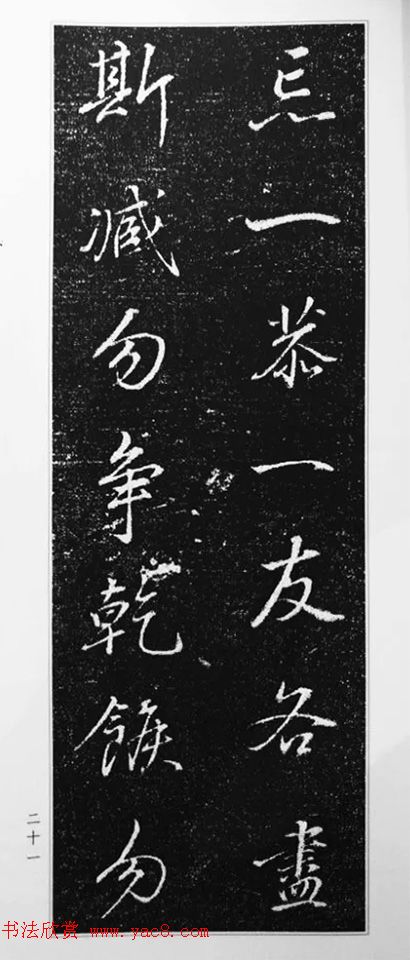 忌一恭一友各盡
斯臧勿争乾餱勿
二十一
书法欣赏 www.yac8.com